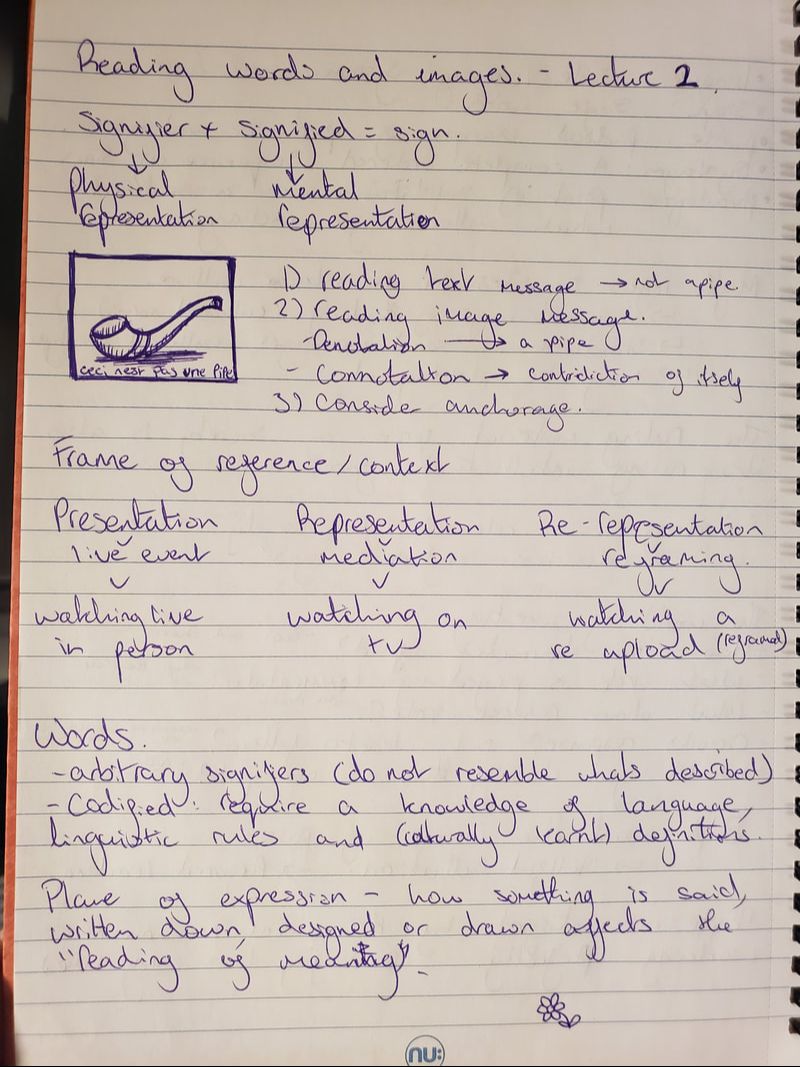 Reading words and images. - Lecture 2.
Signifier + signified = sign.
physical mental
representation representation
1) reading text message → not a pipe.
2) reading image message.
-Denotation → a pipe
- Connotation → contridiction of itself
3) Conside anchorage.
ceci nest pas une pipe
Frame of reference/context
Presentation Representation Re-representation
live event mediation reframing.
watching live watching on watching a
in person tv re upload (reframed)
Words.
- arbitrary signifiers (do not resemble whats described)
- Codified: require a knowledge of language,
linguistic rules and (culturally learnt) definitions.
Plane of expression - how something is said,
written down, designed or drawn affects the
"reading of meaning".
nu: